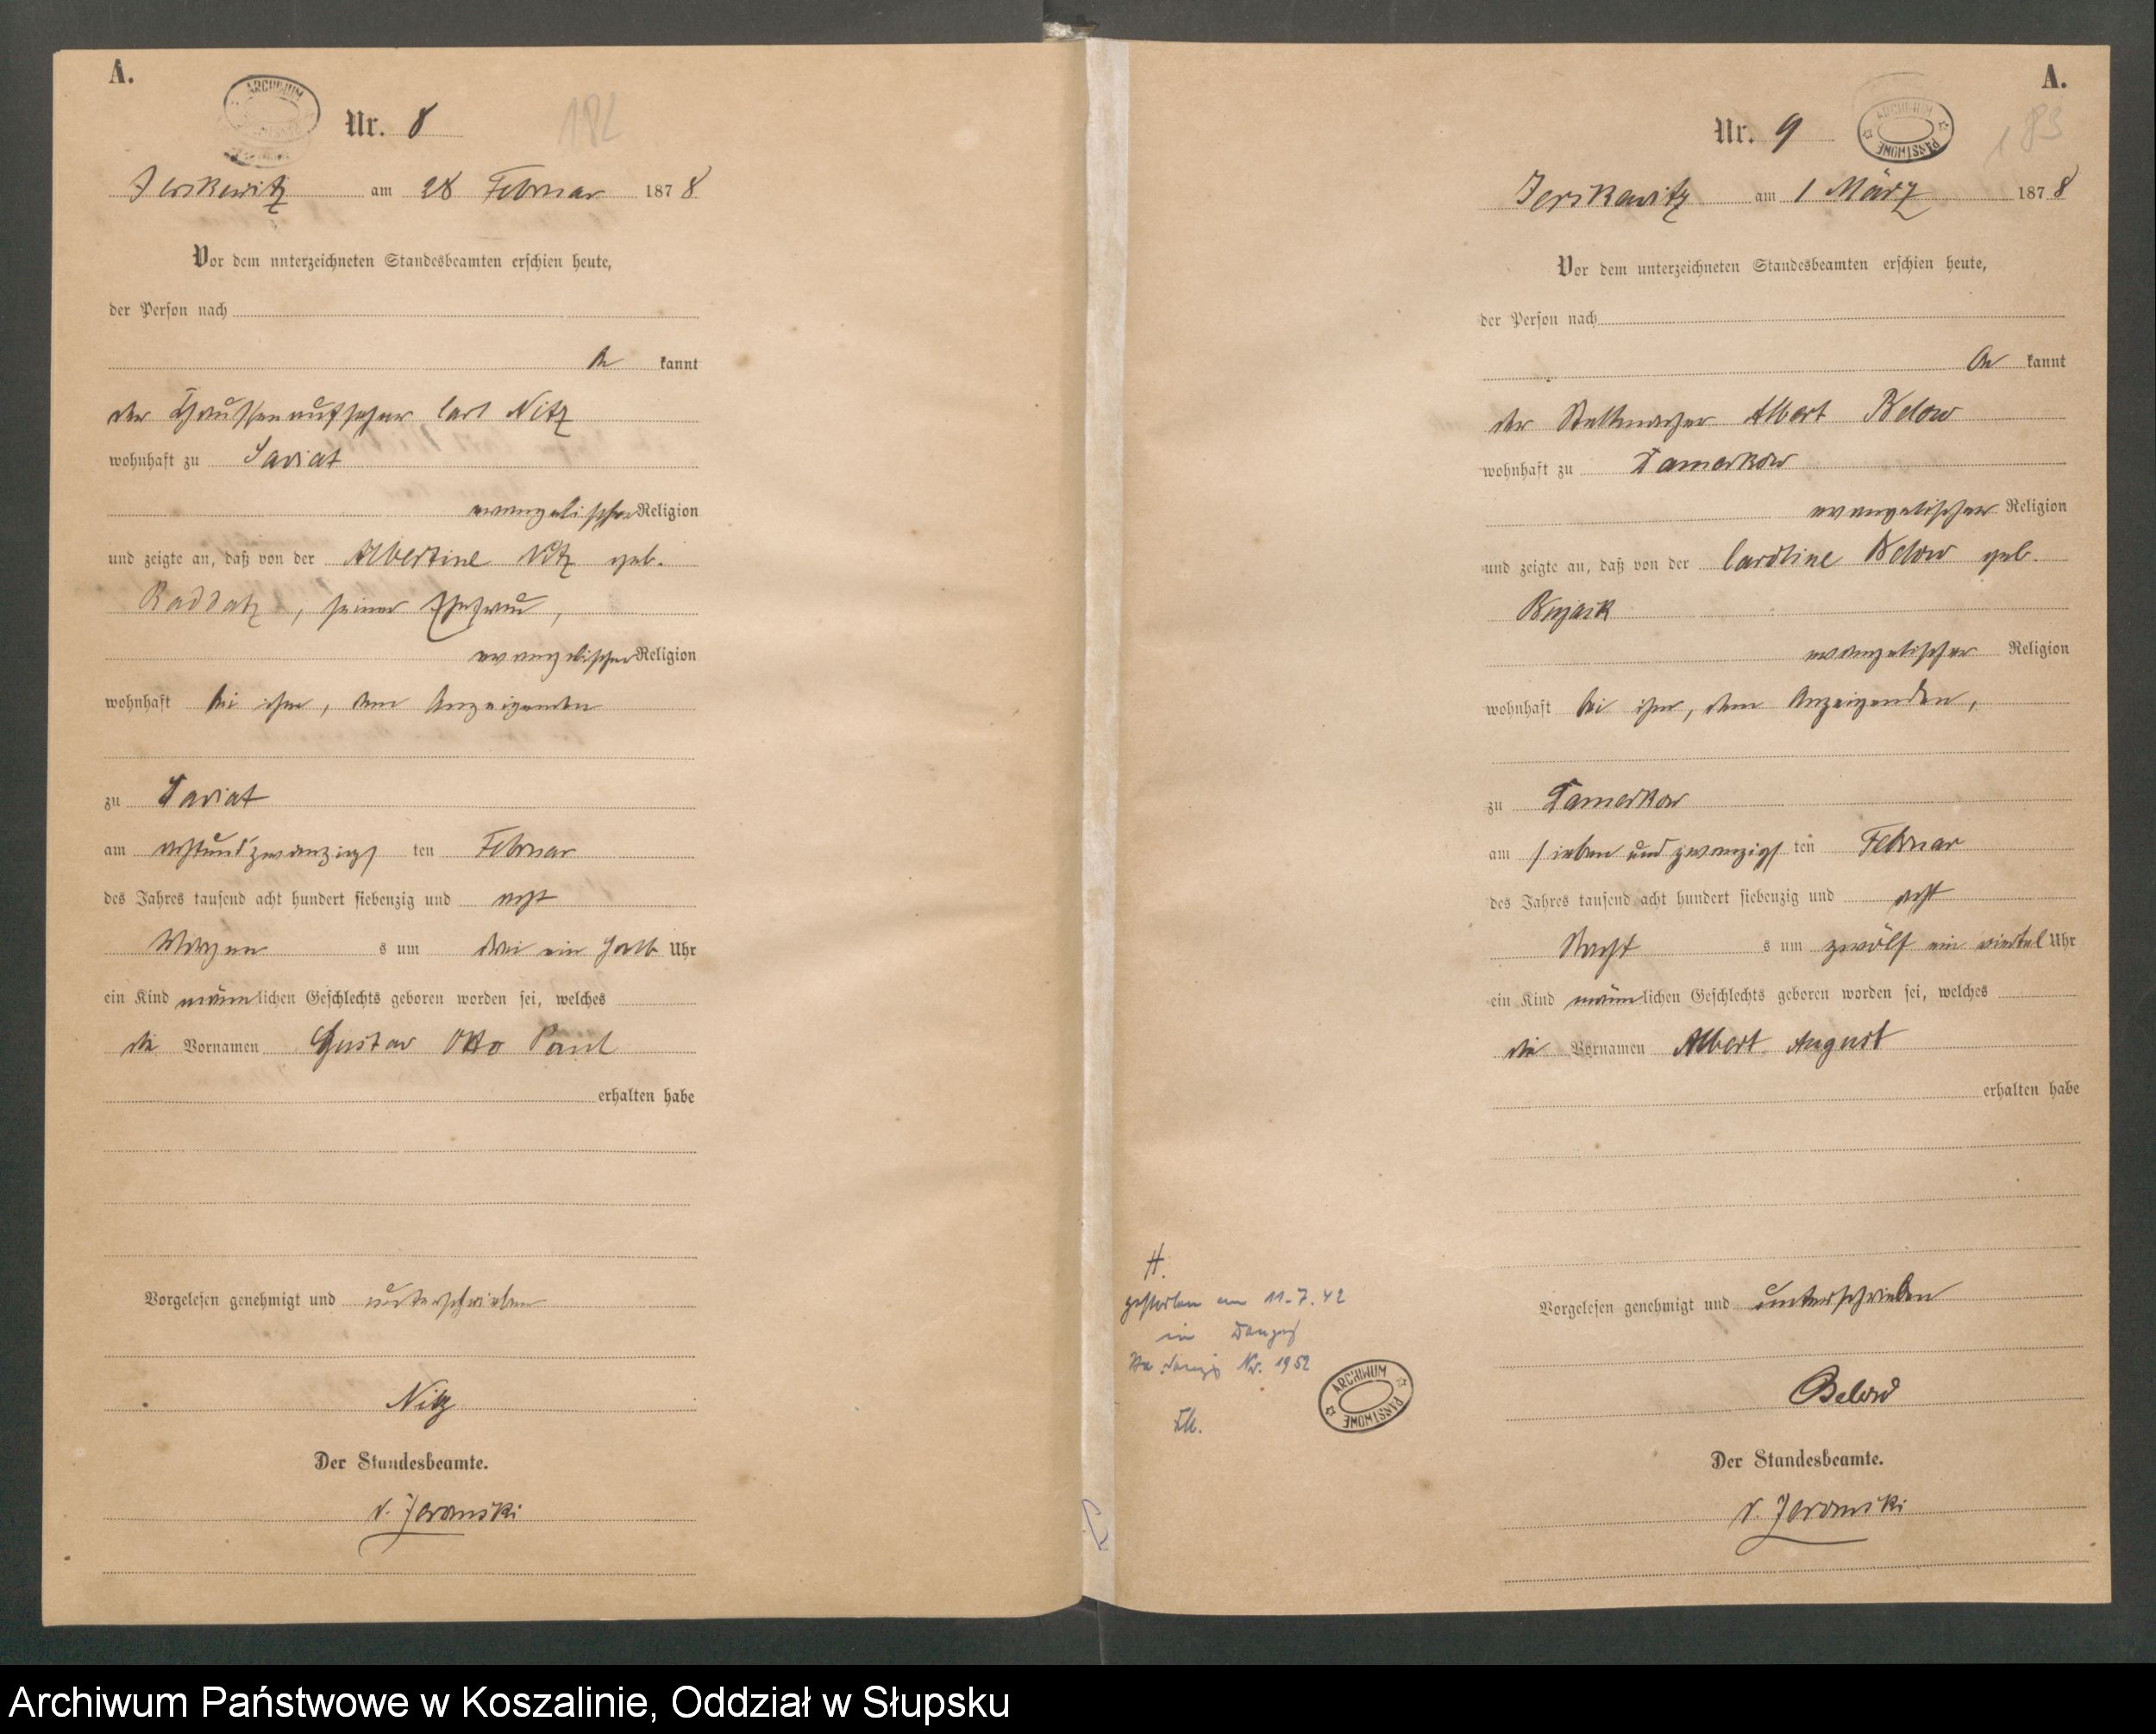 A.
ARCHIWUM
Nr. 8
182
Jerskewitz am 28 Februar 1878
Vor dem unterzeichneten Standesbeamten erschien heute,
der Person nach
be kannt
der Chausseeaufseher Carl Nitz
wohnhaft zu Saviat
evangelischer Religion
und zeigte an, daß von der Albertine Nitz geb.
Raddatz, seiner Ehefrau,
evangelischer Religion
wohnhaft bei ihm, dem Anzeigenden
zu Saviat
am achtundzwanzigs ten Februar
des Jahres tausend acht hundert siebenzig und acht
Morgen s um drei ein halb Uhr
ein Kind männlichen Geschlechts geboren worden sei, welches
die Vornamen Gustav Otto Paul
erhalten habe
Vorgelesen genehmigt und unterschrieben
Nitz
Der Standesbeamte.
v. Jeromski
A.
Nr. 9
ARCHIWUM PAŃSTWOWE
183
Jerskewitz am 1 März 1878
Vor dem unterzeichneten Standesbeamten erschien heute,
der Person nach
be kannt
der Stellmacher Albert Below
wohnhaft zu Damerkow
evangelischer Religion
und zeigte an, daß von der Caroline Below geb.
Bujack
evangelischer Religion
wohnhaft bei ihm, dem Anzeigenden,
zu Damerkow
am siebenundzwanzigs ten Februar
des Jahres tausend acht hundert siebenzig und acht
Nacht s um zwölf ein viertel Uhr
ein Kind männlichen Geschlechts geboren worden sei, welches
die Vornamen Albert August
erhalten habe
Vorgelesen genehmigt und unterschrieben
Below
Der Standesbeamte.
v. Jeromski
H.
gestorben am 11.7.42
in Danzig
Sta. Danzig Nr. 1952
ARCHIWUM PAŃSTWOWE
Archiwum Państwowe w Koszalinie, Oddział w Słupsku